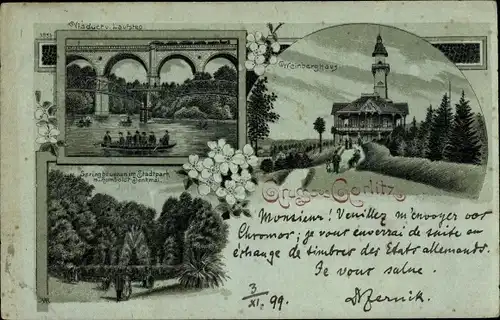 Viaduct v. Laufsteg
Weinberghaus
Springbrunnen im Stadtpark
m. Humboldt Denkmal.
Gruss aus Görlitz
Monsieur! Veuillez m'envoyer vos
Chromos; je vous enverrai de suite en
échange de timbres des Etats allemands.
Je vous salue.
3/XI. 99.